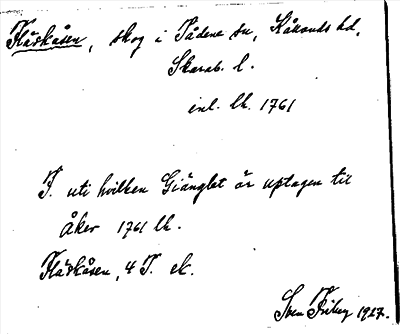 Flåskåsen, skog i Tådene sn, Kållands hd,
Skarab. l.
enl. lh. 1761
T. uti hvilken Giänglet är uptagen til
åker 1761 lh.
Flåskåsen, 4 T. ek.
Sven Friberg 1927.